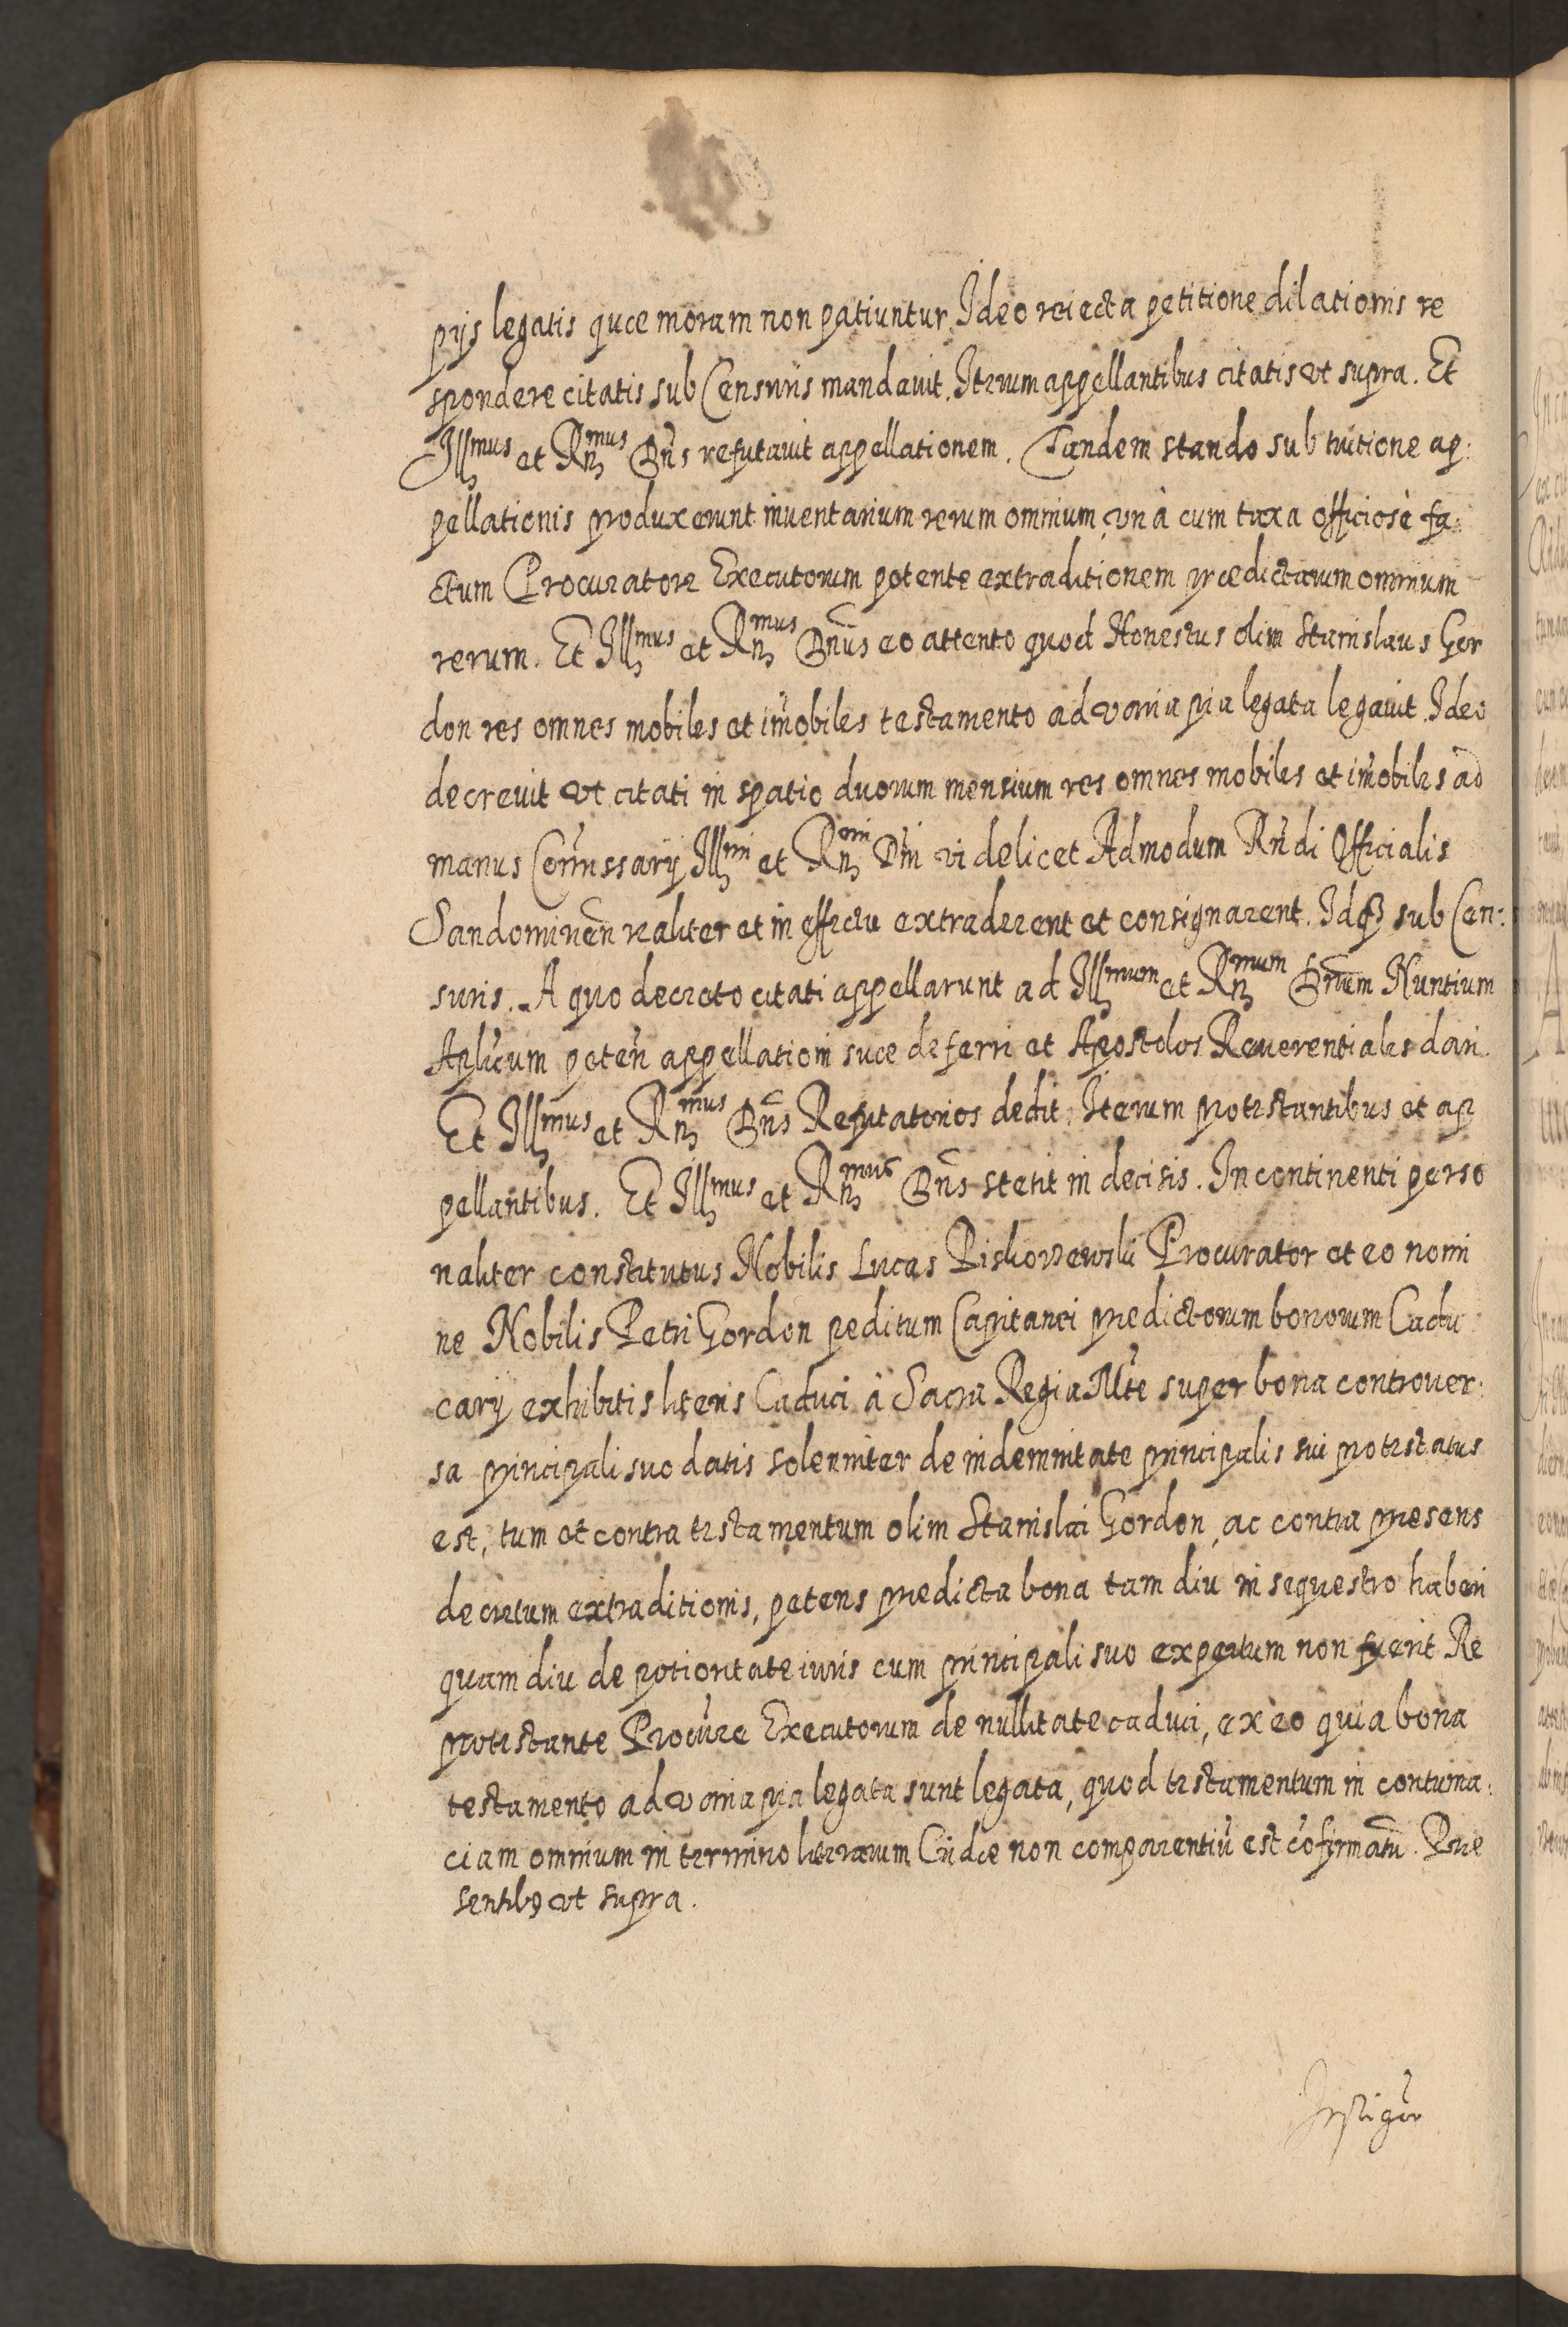 pijs legatis quæ moram non patiuntur. Ideo reiecta petitione dilationis re
spondere citatis sub Censuris mandauit. Iterum appellantibus citatis vt supra. Et
Illmus et Rndmus Dns refutauit appellationem. Tandem stando sub tuitione ap:
pellationis produxerunt inuentarium rerum omnium vnà cum taxa officiosè fa:
ctum Procuratore Executorum petente extraditionem prædictarum omnium
rerum. Et Illmus et Rndmus Dnus eo attento quod Honestus olim Stanislaus Gor
don res omnes mobiles et im̃obiles testamento ad varia pia legata legauit. Ideo
decreuit vt citati in spatio duorum mensium res omnes mobiles et im̃obiles ad
manus Com̃issarij Illmi et Rndmi Dni videlicet Admodum Rndi Officialis
Sandominen realiter et in effectu extraderent et consignarent. Idq3 sub Cen:
suris. A quo decreto citati appellarunt ad Illmum et Rndmum Dnum Nuntium
Aplicum peten appellationi suæ deferri et Apostolos Reuerentiales dari.
Et Illmus et Rndmus Dns Refutatorios dedit. Iterum protestantibus et ap
pellantibus. Et Illmus et Rndmus Dns stetit in decisis. In continenti perso
naliter constitutus Nobilis Lucas Piskorzewski Procurator et eo nomi
ne Nobilis Petri Gordon peditum Capitanei prædictorum bonorum Cadu
carij exhibitis literis Caduci à Sacra Regia Mte super bona controuer:
sa principali suo datis solenniter de indemnitate principalis sui protestatus
est, tum et contra testamentum olim Stanislai Gordon, ac contra præsens
decretum extraditionis, petens prædicta bona tam diu in sequestro haberi
quam diu de potioritate iuris cum principali suo expertum non fuerit. Re
protestante Procure Executorum de nullitate caduci, ex eo quia bona
testamento ad varia pia legata sunt legata, quod testamentum in contuma:
ciam omnium in termino literarum Cridæ non comparentiũ est cõfirmatũ. Præ
sentib9 vt supra.
Instigãr